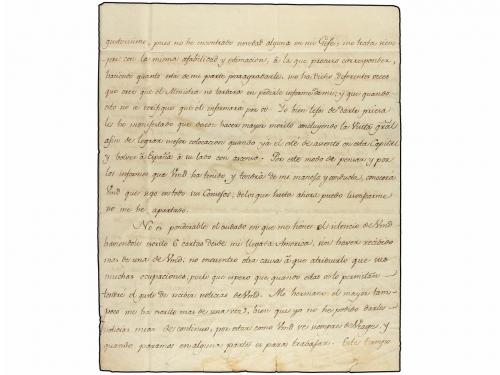 gustosisimo, pues no he encontrado novedad alguna en mi Gefe, me trata siem
pre con la misma afabilidad y estimacion, à la que procuro corresponder,
haciendo quanto està de mi parte para agradarle, me ha dicho diferentes veces
que cree que el Ministro no tardarà en pedirle informe de mi; y que quando
esto no se verifique que el informarà por si. Yo bien lejos de darle priesa
le he manifestado que deseo hacer mayor merito concluyendo la Visita gral
afin de lograr mejor colocacion quando yà el estè de asiento en esta Capital
y bolver à España à su lado con ascenso. Por este modo de pensar y por
los informes que Vmd ha tenido, y tendrà de mi manejo y conducta, conocerà
Vmd que sigo en todo sus Consejos; delos que hasta ahora puedo lisonjearme
no me he apartado.
No es ponderable el cuidado en que me tiene el silencio de Vmd
haviendole escrito 6 cartas desde mi llegada America, sin haver recibido
mas de una de Vmd: no encuentro otra causa à que atribuirlo que sus
muchas ocupaciones, por lo que espero que quando estas se lo permitan
tendrè el gusto de recibir noticias de Vmd. Mi hermano el mayor tam-
poco me ha escrito mas de una vez, bien que yo no he podido darles
noticias mias de continuo, por estar como Vmd vè siempre de Viages, y
quando paramos en alguna parte es para trabajar. Este tiempo